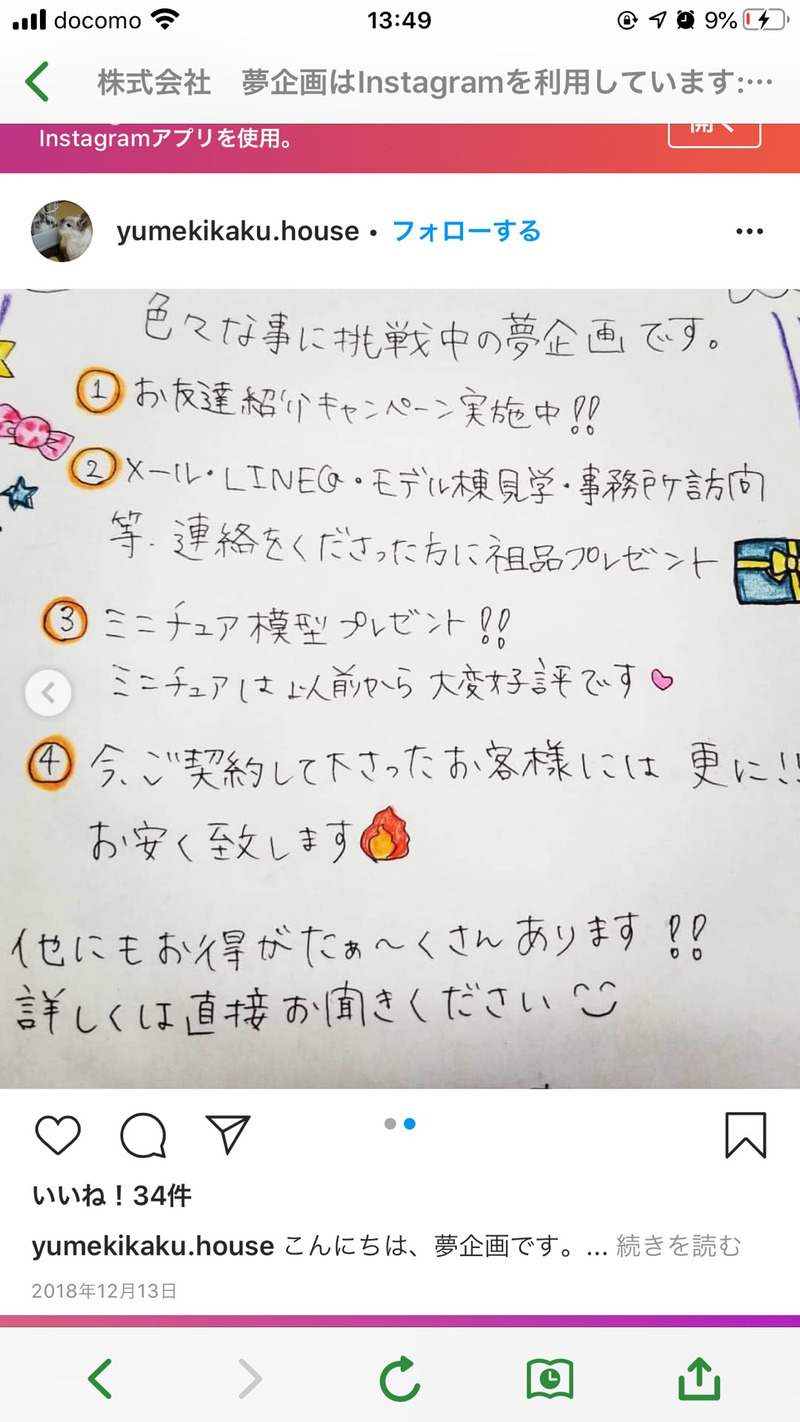 docomo 13:49 9%
株式会社　夢企画はInstagramを利用しています:…
Instagramアプリを使用。
開く
yumekikaku.house • フォローする
色々な事に挑戦中の夢企画です。
① お友達紹介キャンペーン実施中!!
② メール・LINE@・モデル棟見学・事務所訪問
等、連絡をくださった方に祖品プレゼント
③ ミニチュア模型プレゼント!!
ミニチュアは以前から大変好評です
④ 今、ご契約して下さったお客様には 更に!!
お安く致します
他にもお得がたぁ〜くさんあります!!
詳しくは直接お聞きください
いいね！34件
yumekikaku.house こんにちは、夢企画です。... 続きを読む
2018年12月13日